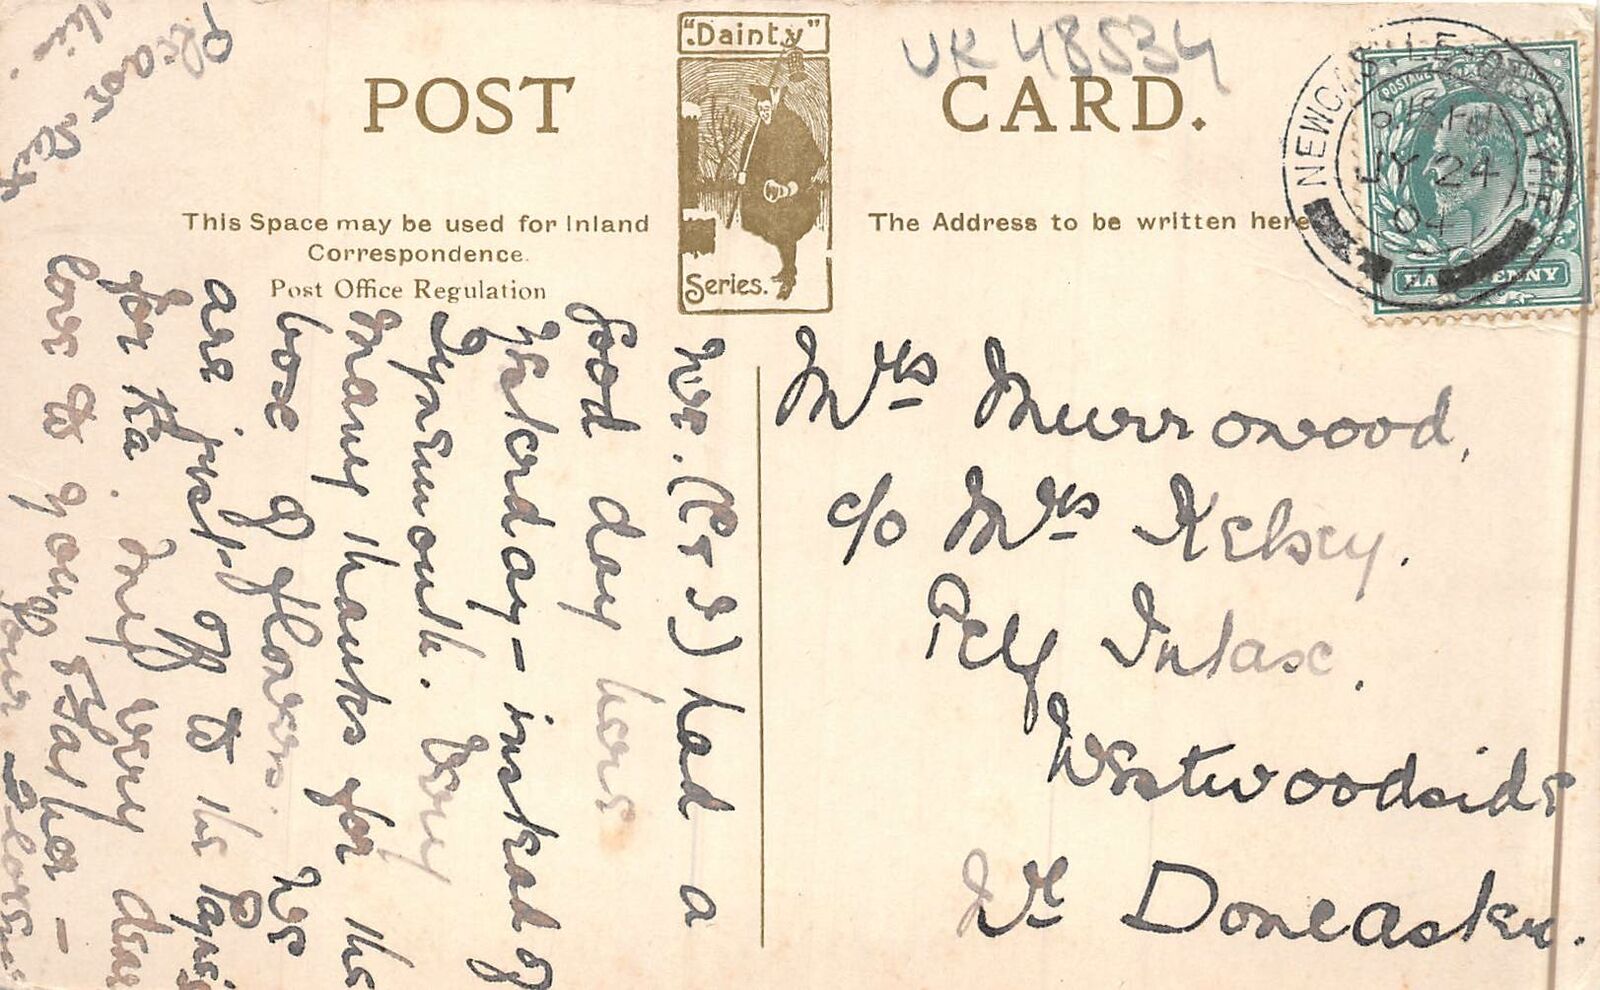 UK 48534
"Dainty"
Series.
POST CARD.
This Space may be used for Inland
Correspondence.
Post Office Regulation
The Address to be written here
NEWCASTLE-ON-TYNE
JY 24
04
HALFPENNY
Mrs Murrowood,
c/o Mrs Kelsey.
Westwoodside
Nr Doncaster.
We. (P & I) had a
good day here
yesterday – instead of
Tynemouth. Very
many thanks for the
box of flowers. We
are just off to the
for tea. My very dear
love to you & Father –
Your